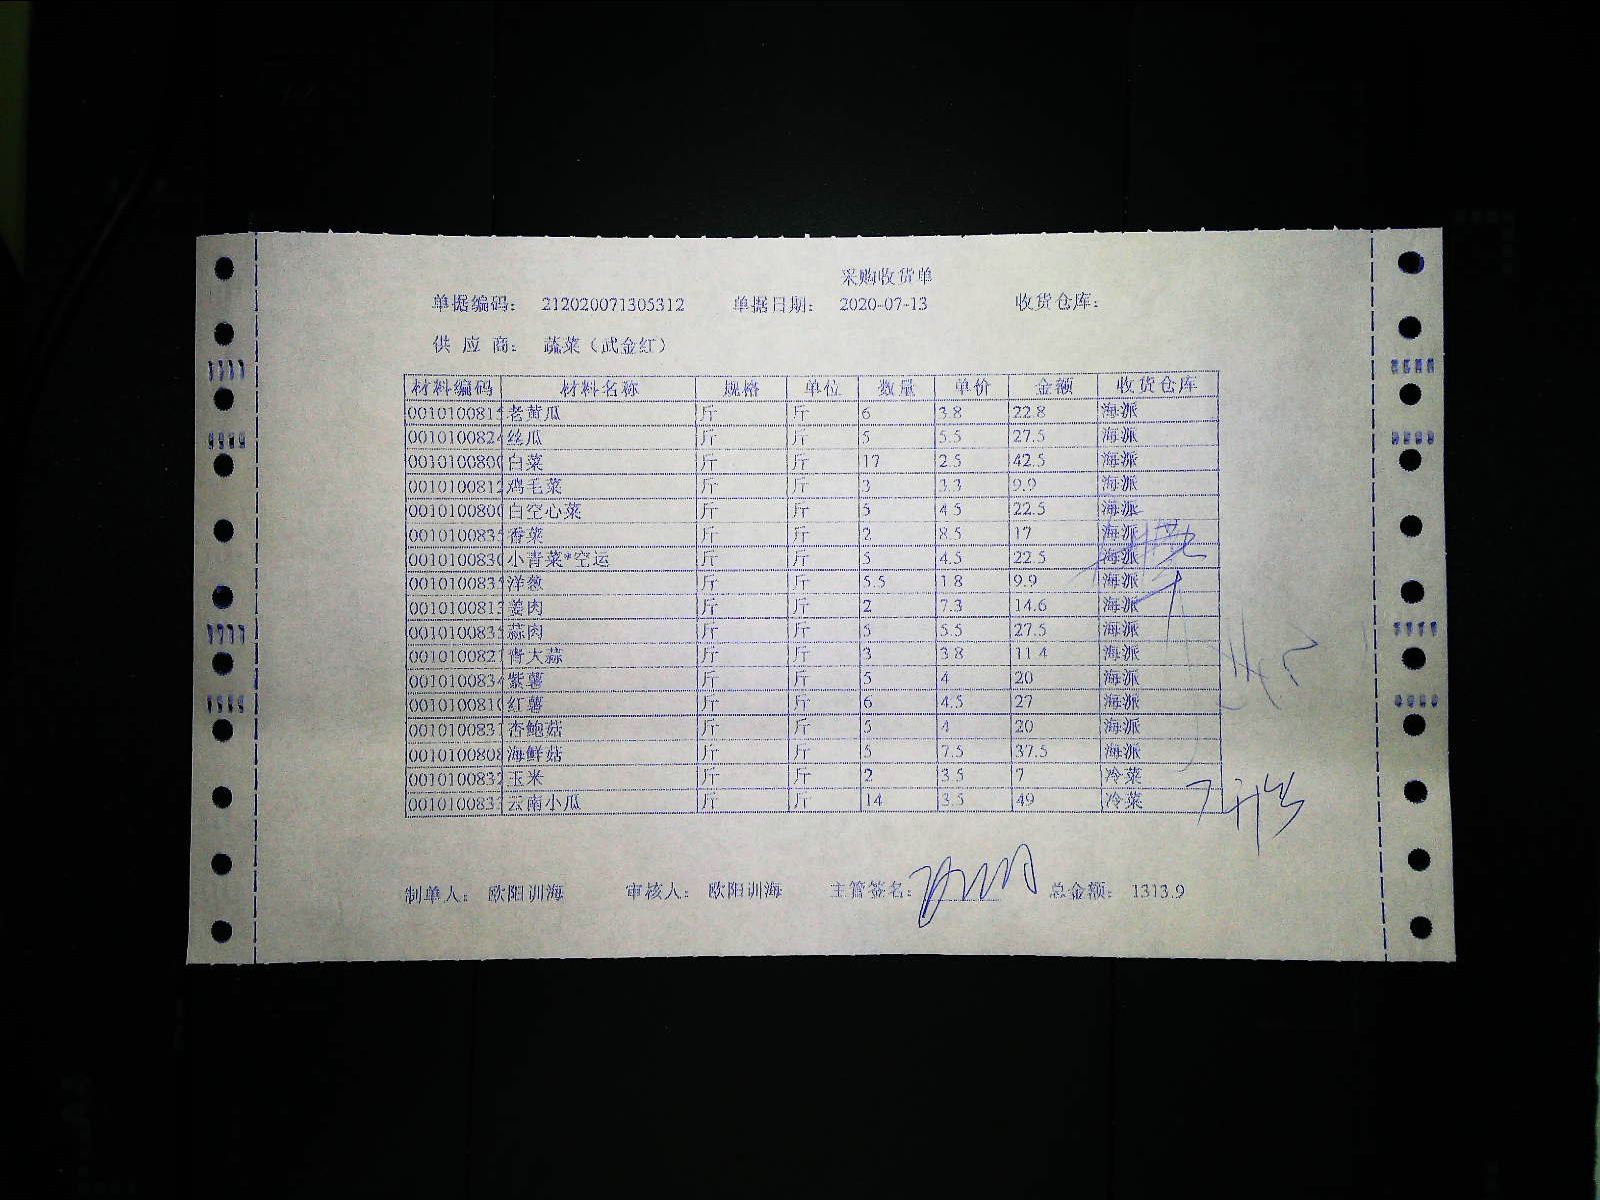 采购收货单
单据编码： 212020071305312 单据日期： 2020-07-13 收货仓库：
供 应 商： 蔬菜（武金红）
材料编码 材料名称 规格 单位 数量 单价 金额 收货仓库
001010081 老黄瓜 斤 斤 6 3.8 22.8 海派
001010082 丝瓜 斤 斤 5 5.5 27.5 海派
001010080 白菜 斤 斤 17 2.5 42.5 海派
0010100812 鸡毛菜 斤 斤 3 3.3 9.9 海派
001010080 白空心菜 斤 斤 5 4.5 22.5 海派
001010083 香菜 斤 斤 2 8.5 17 海派
001010083 小青菜*空运 斤 斤 5 4.5 22.5 海派
001010083 洋葱 斤 斤 5.5 1.8 9.9 海派
001010081 姜肉 斤 斤 2 7.3 14.6 海派
001010083 蒜肉 斤 斤 5 5.5 27.5 海派
001010082 青大蒜 斤 斤 3 3.8 11.4 海派
001010083 紫薯 斤 斤 5 4 20 海派
001010081 红薯 斤 斤 6 4.5 27 海派
001010083 杏鲍菇 斤 斤 5 4 20 海派
001010080 海鲜菇 斤 斤 5 7.5 37.5 海派
0010100832 玉米 斤 斤 2 3.5 7 冷菜
001010083 云南小瓜 斤 斤 14 3.5 49 冷菜
制单人： 欧阳训海 审核人： 欧阳训海 主管签名： 总金额： 1313.9